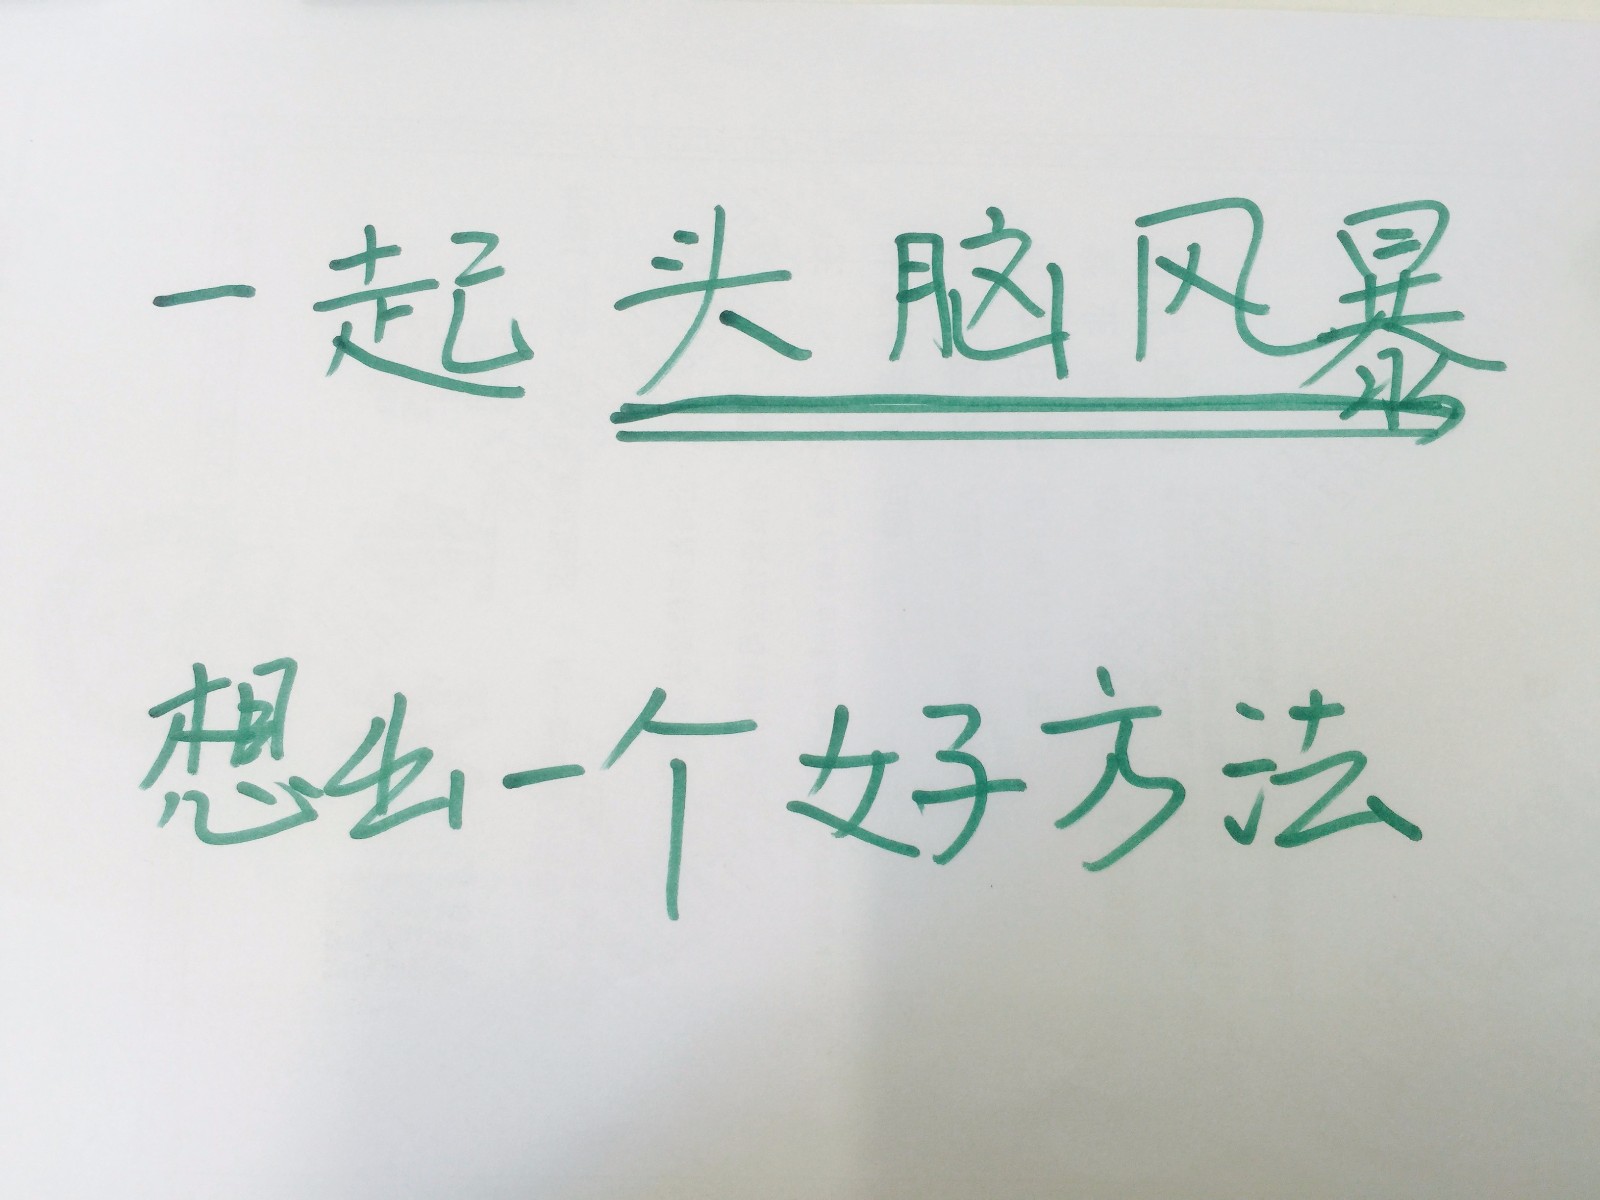 一起头脑风暴
想出一个好方法